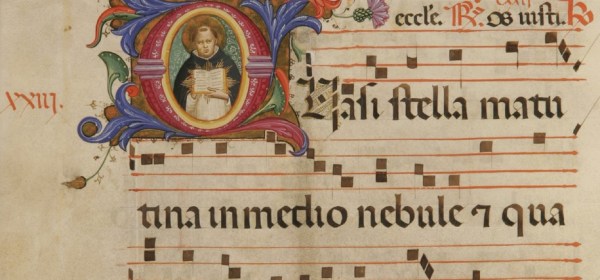 eccłe. ℟. Os iusti.
xxiii.
QUasi stella matu
tina in medio nebule ⁊ qua